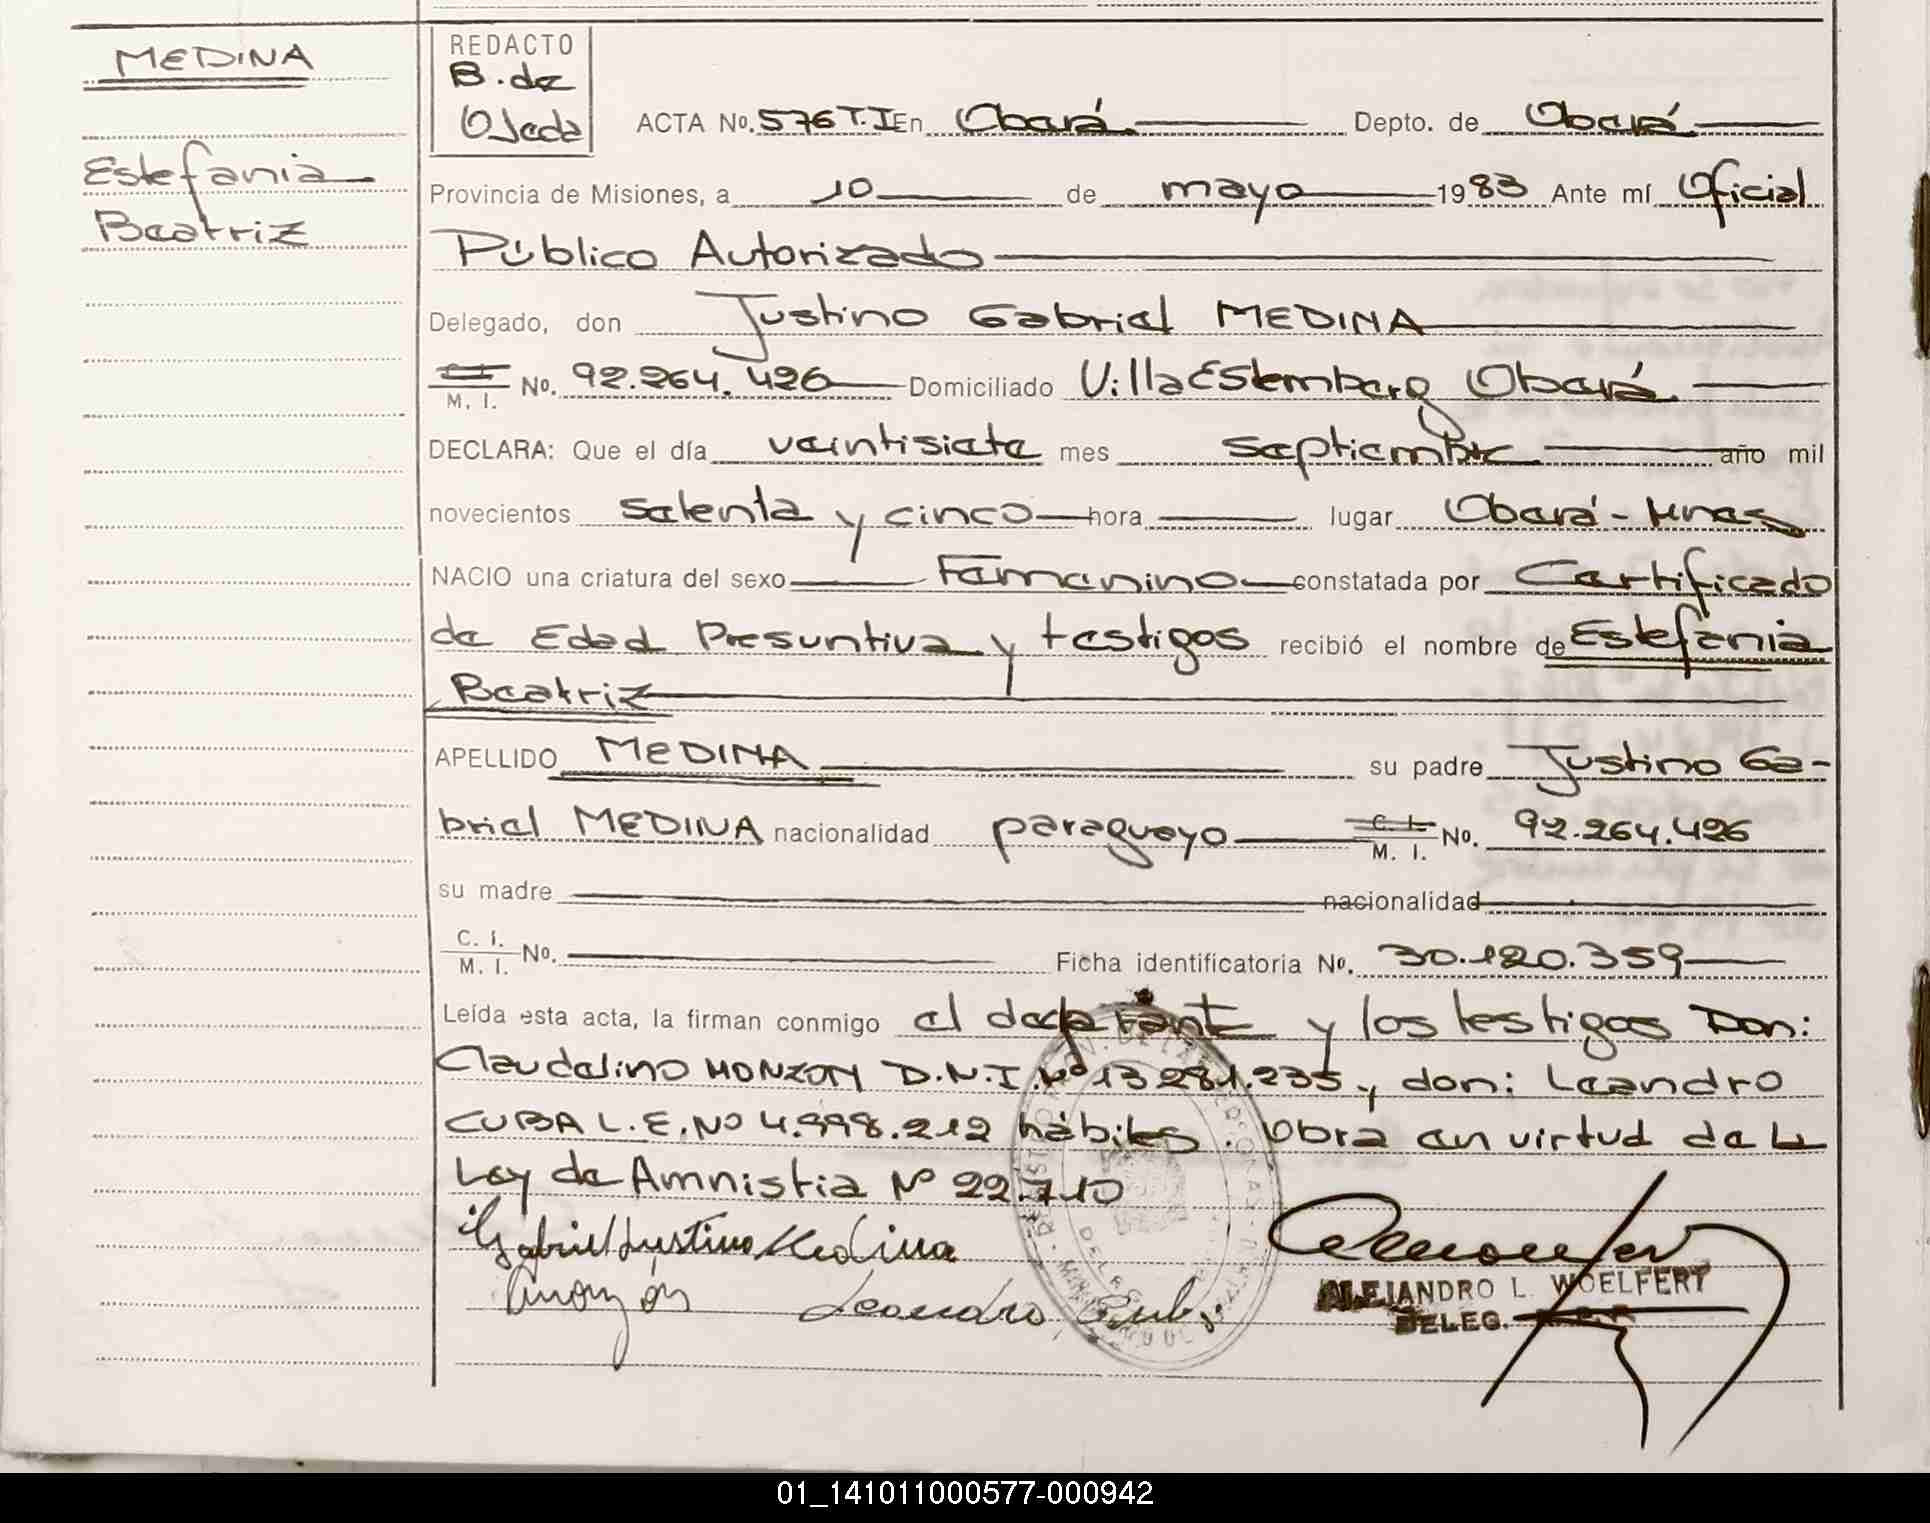 MEDINA
Estefania
Beatriz
REDACTO
B. de
Ojeda
ACTA No. 576 T.I En Oberá Depto. de Oberá
Provincia de Misiones, a 10 de mayo 1983 Ante mí Oficial
Público Autorizado
Delegado, don Justino Gabriel MEDINA
C. I. / M. I. No. 92.264.426 Domiciliado Villa Estemberg Oberá
DECLARA: Que el día veintisiete mes septiembre año mil
novecientos setenta y cinco hora lugar Oberá - Mnes
NACIO una criatura del sexo Femenino constatada por Certificado
de Edad Presuntiva y testigos recibió el nombre de Estefania
Beatriz
APELLIDO MEDINA su padre Justino Ga-
briel MEDINA nacionalidad paraguayo C. I. / M. I. No. 92.264.426
su madre nacionalidad
C. I. / M. I. No. Ficha identificatoria No. 30.120.359
Leída esta acta, la firman conmigo el declarante y los testigos Don:
Claudelino MONZON D.N.I. Nº 13.281.235 y don: Leandro
CUBA L.E. Nº 4.998.212 hábiles. Obra en virtud de la
Ley de Amnistia Nº 22.710
Gabriel Justino Medina
Leandro Cuba
ALEJANDRO L. WOELFERT
DELEG.
01_141011000577-000942